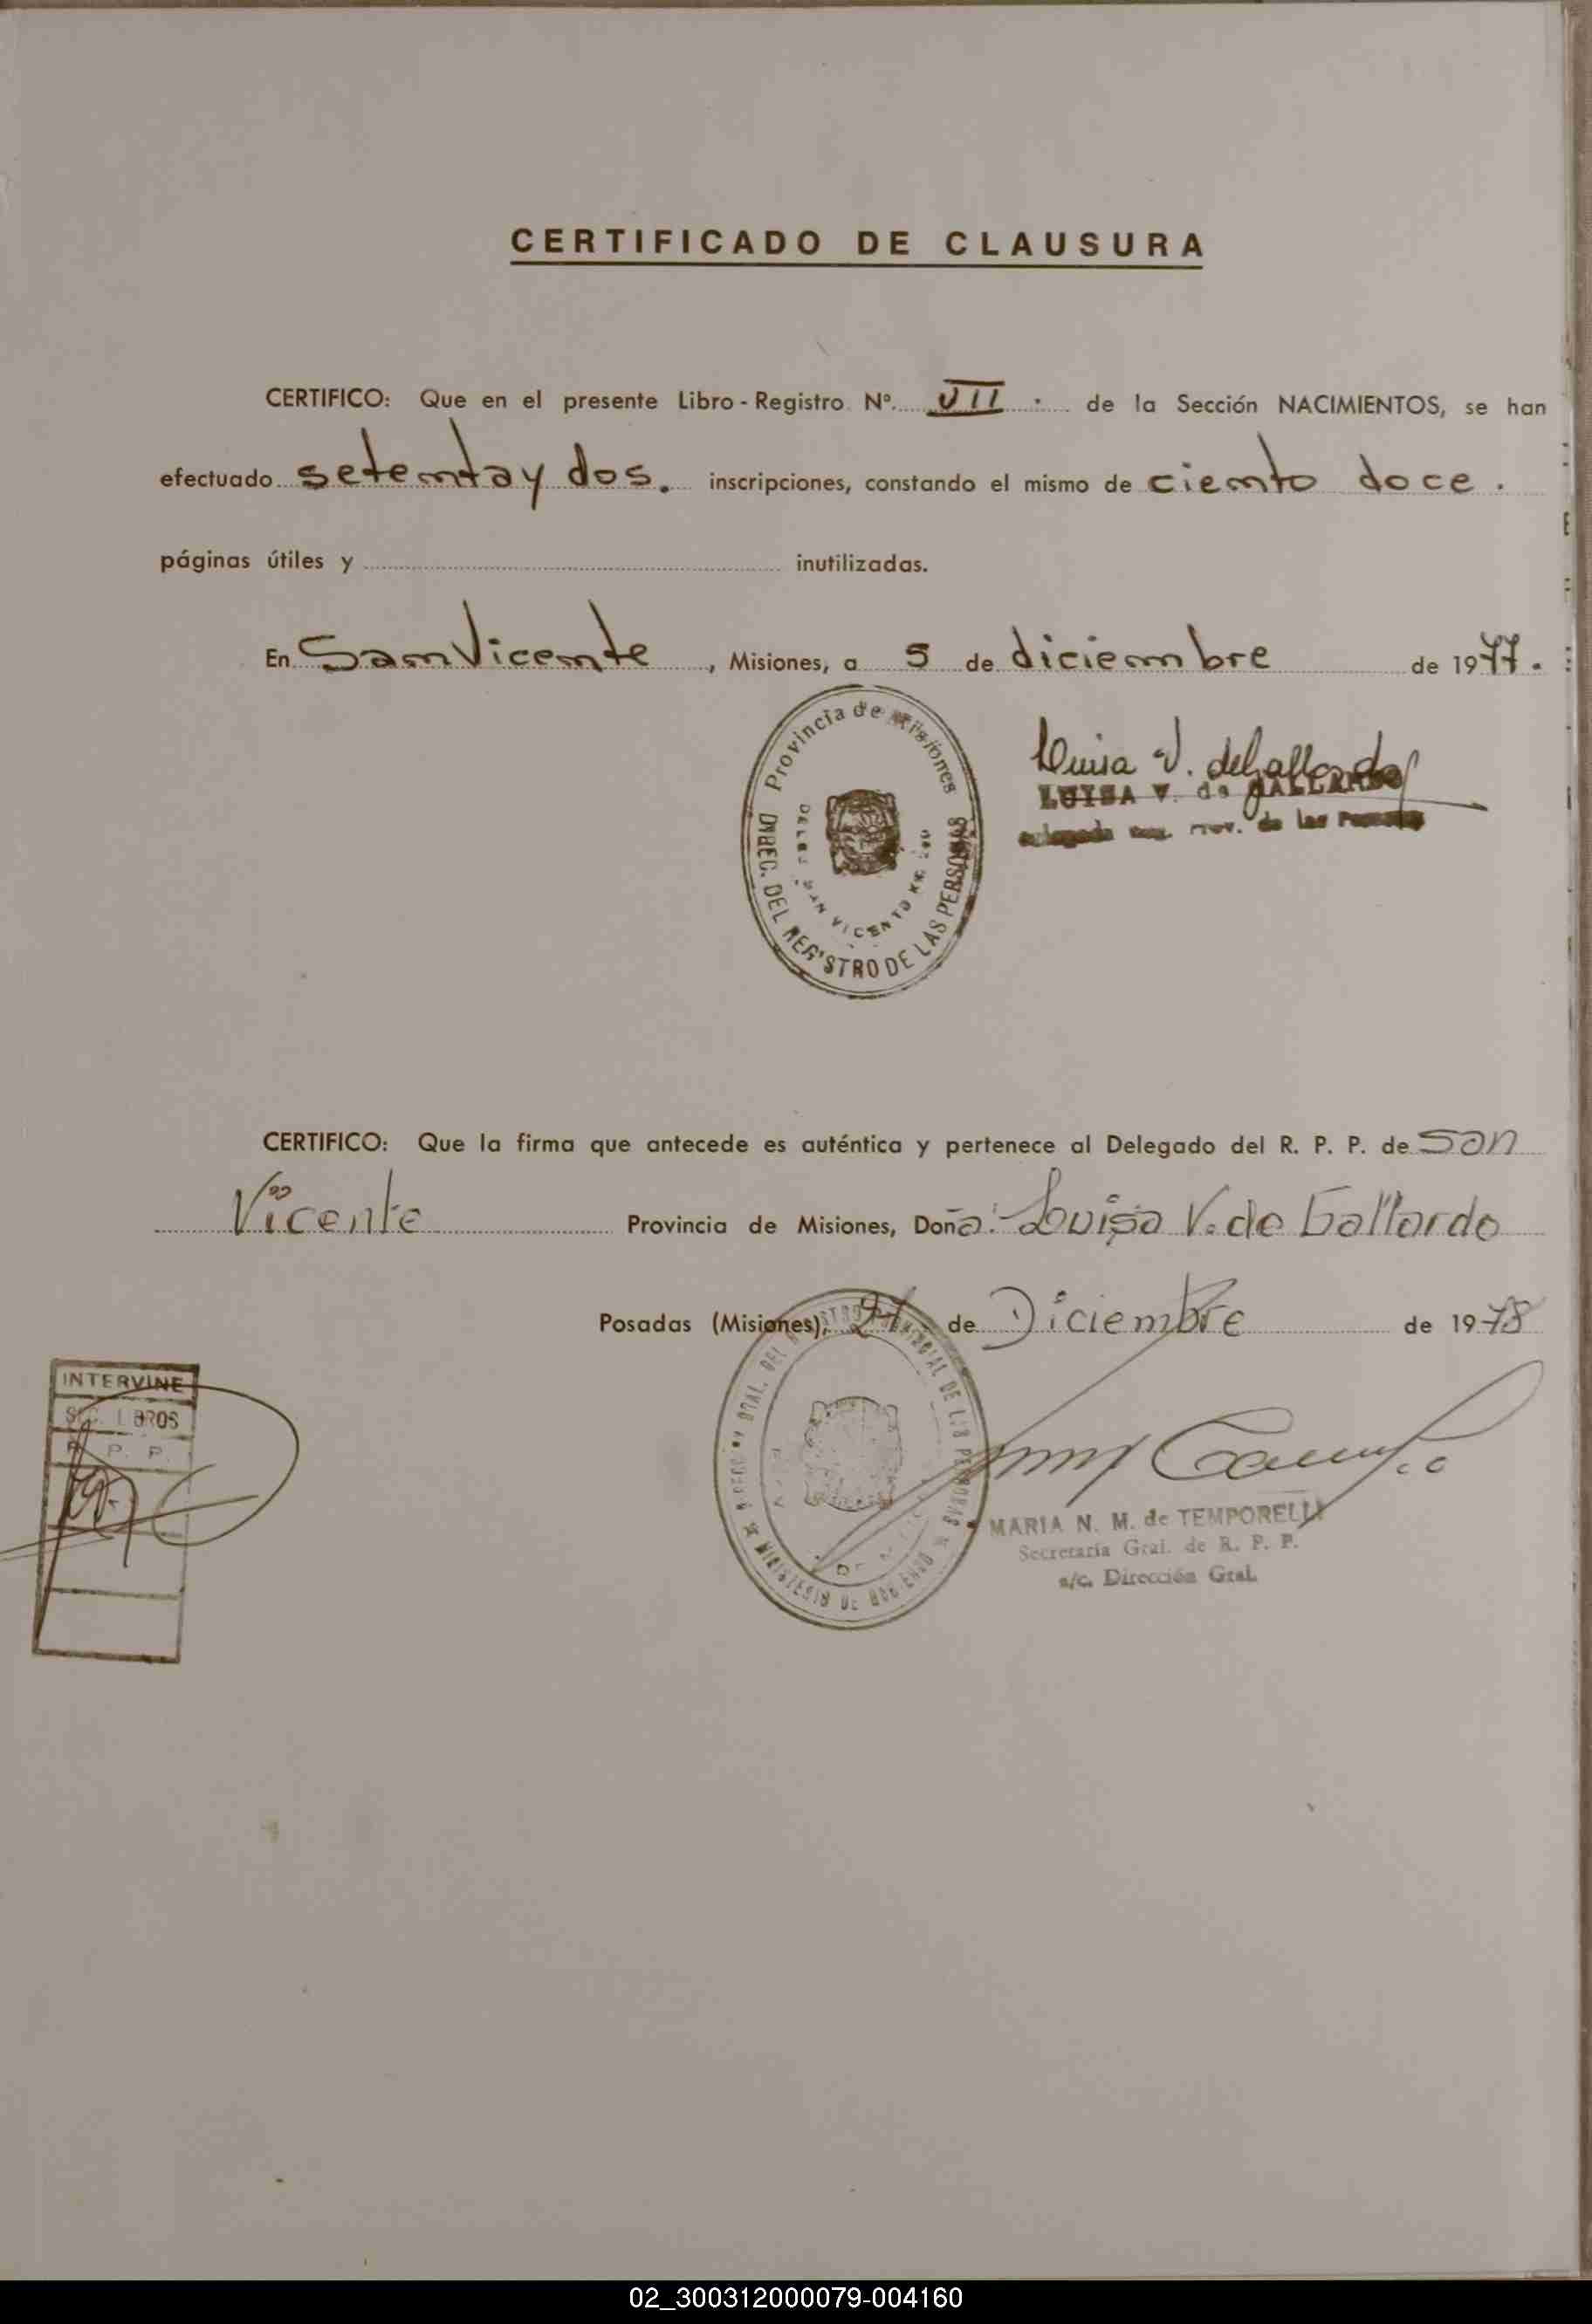 CERTIFICADO DE CLAUSURA
CERTIFICO: Que en el presente Libro-Registro Nº VII. de la Sección NACIMIENTOS, se han
efectuado setenta y dos. inscripciones, constando el mismo de ciento doce.
páginas útiles y inutilizadas.
En San Vicente, Misiones, a 5 de diciembre de 1977.
Provincia de Misiones
DIREC. DEL REGISTRO DE LAS PERSONAS
SAN VICENTE
Luisa V. de Gallardo
LUISA V. de GALLARDO
de las
CERTIFICO: Que la firma que antecede es auténtica y pertenece al Delegado del R. P. P. de San
Vicente Provincia de Misiones, Doña: Louisa V. de Gallardo
Posadas (Misiones), 21 de Diciembre de 1978
INTERVINE
SEC. LIBROS
R. P. P.
MINISTERIO DE GOBIERNO
MARIA N. M. de TEMPORELLI
Secretaria Gral. de R. P. P.
a/c. Dirección Gral.
02_300312000079-004160